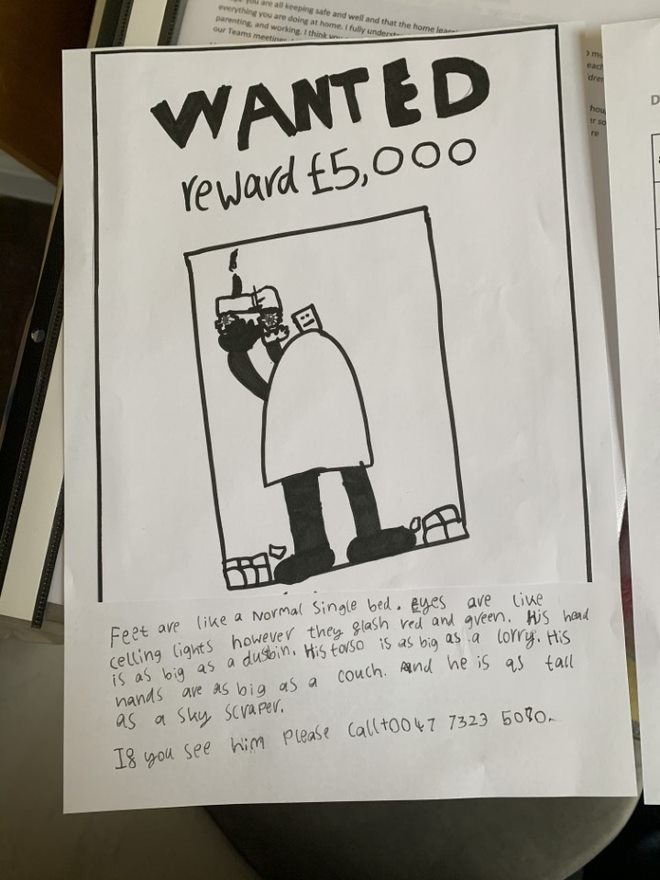 you are all keeping safe and well and that the home
everything you are doing at home. I fully
parenting, and working. I think
our Teams
WANTED
reward £5,000
Feet are like a Normal single bed. Eyes are live
celling lights however they flash red and green. His head
is as big as a dustbin. His torso is as big as a lorry. His
hands are as big as a couch. And he is as tall
as a sky scraper.
If you see him please call +0047 7323 5070.